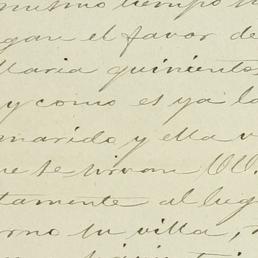 mismo tiempo
gan el favor de
Maria quinientos
y como es ya la
marido y ella v
ue se sirvan UU.
tamente al lug
orno su villa,